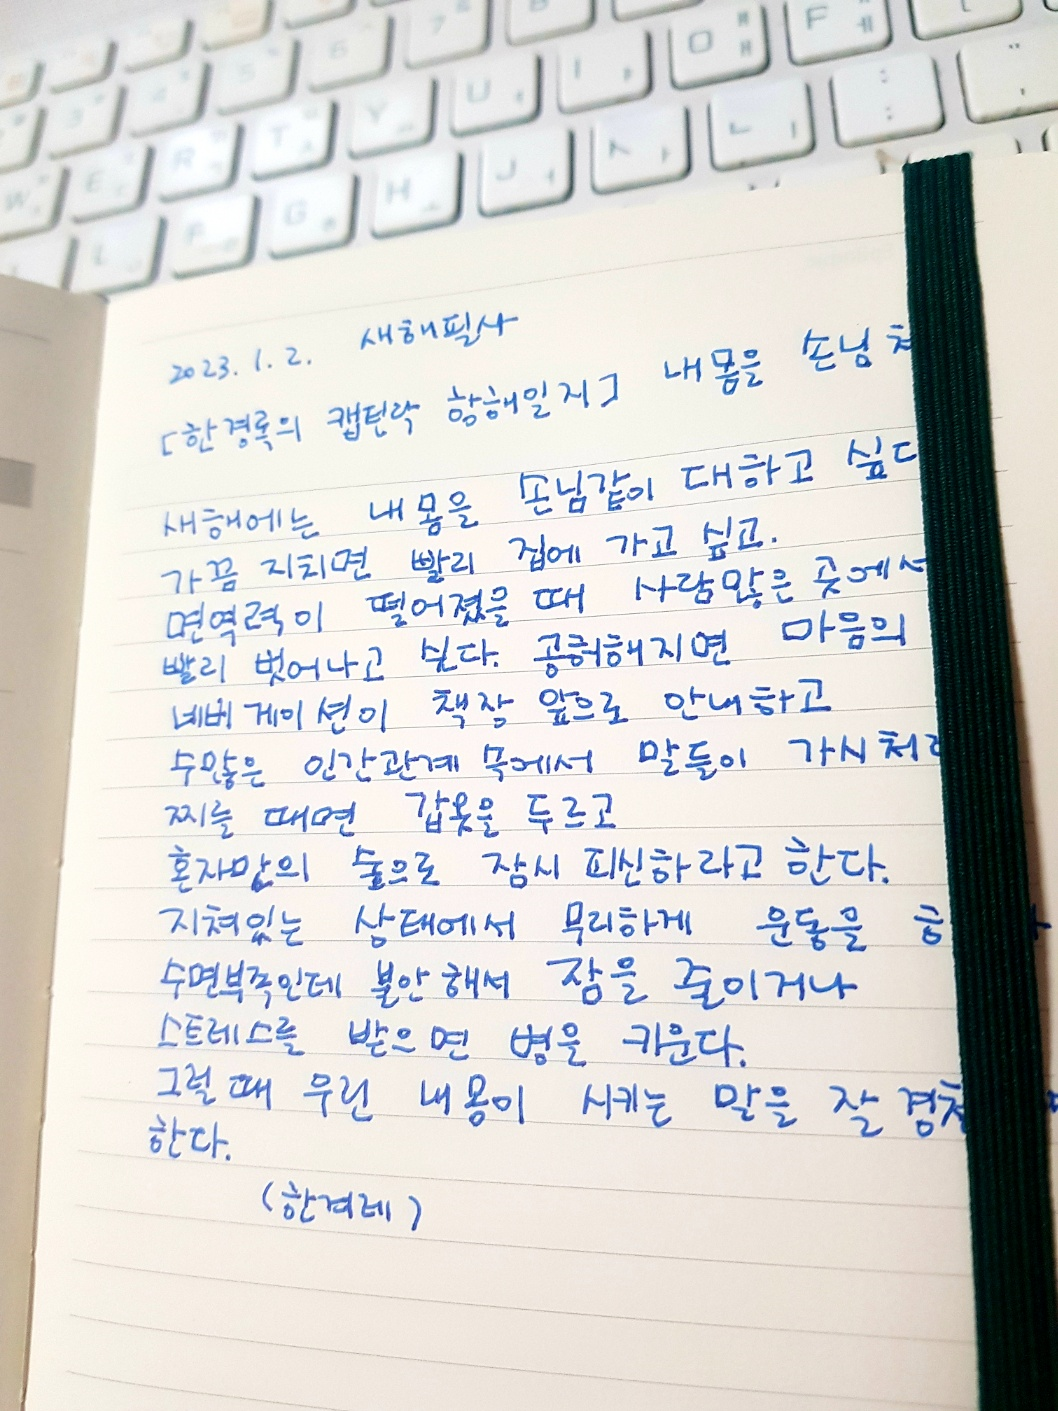 7
8
3
4
5
6
7
8
W
E
R
T
Y
U
I
O
P
F
G
H
J
L
;
2023. 1. 2. 새해필사
[한경록의 캡틴락 항해일지] 내 몸을 손님처
새해에는 내 몸을 손님같이 대하고 싶다
가끔 지치면 빨리 집에 가고 싶고.
면역력이 떨어졌을 때 사람많은 곳에서
빨리 벗어나고 싶다. 공허해지면 마음의
네버게이션이 책장 앞으로 안내하고
수많은 인간관계 속에서 말들이 가시처럼
찌를 때면 갑옷을 두르고
혼자만의 숲으로 잠시 피신하라고 한다.
지쳐있는 상태에서 무리하게 운동을
수면부족인데 불안해서 잠을 줄이거나
스트레스를 받으면 병을 키운다.
그럴 때 우린 내 몸이 시키는 말을 잘 경청
한다.
(한겨레)